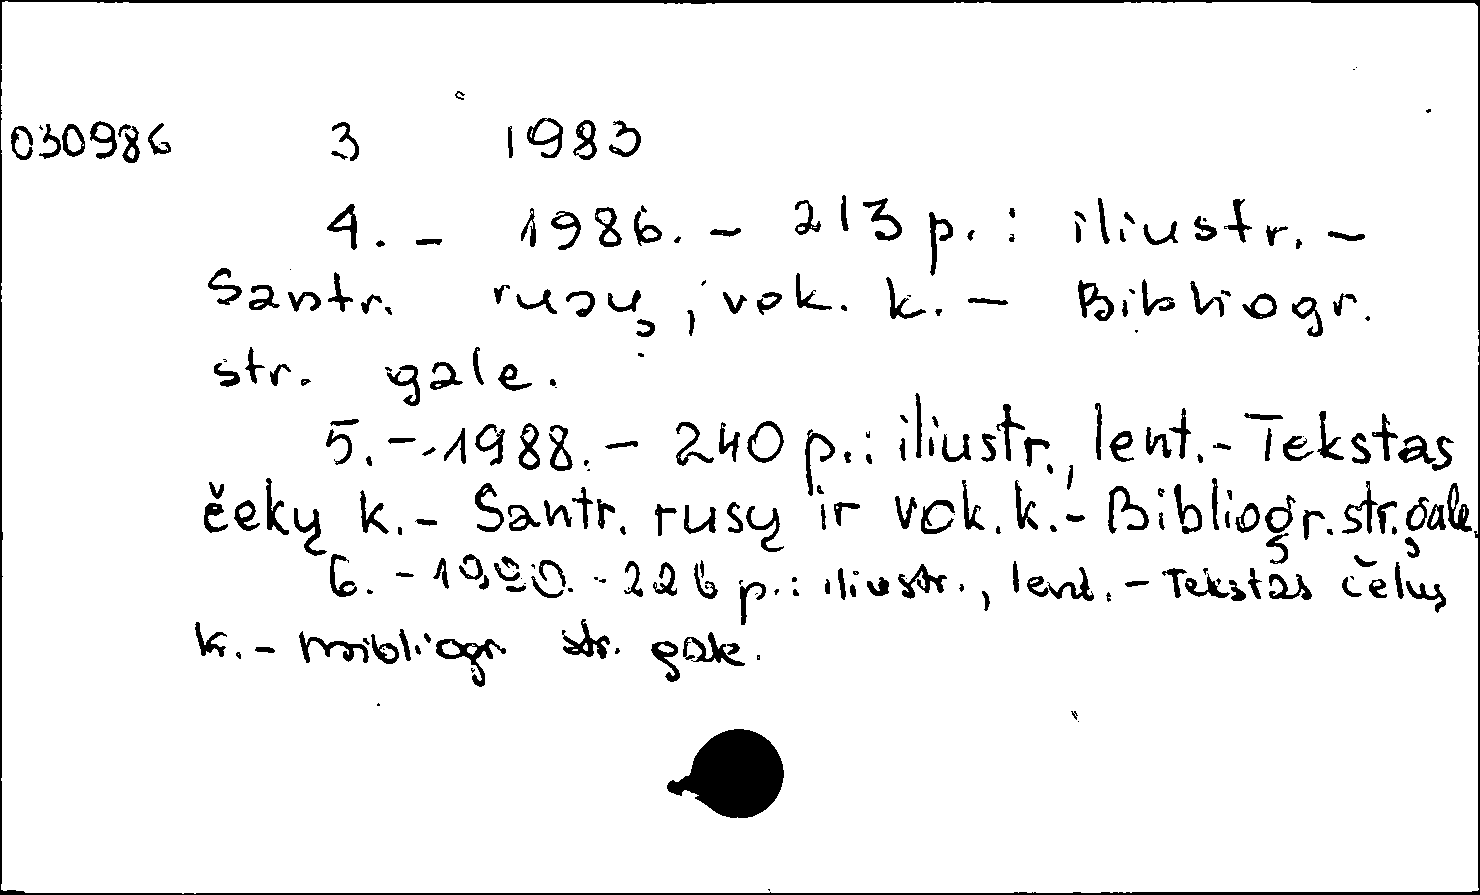 030986 3 1983
4. - 1986. - 213 p. : iliustr. -
Santr. rusų, vok. k. - Bibliogr.
str. gale.
5. - 1988. - 240 p.: iliustr., lent. - Tekstas
čekų k. - Santr. rusų ir vok. k. - Bibliogr. str. gale.
6. - 1990. - 226 p.: iliustr., lent. - Tekstas čekų
k. - Bibliogr. str. gale.